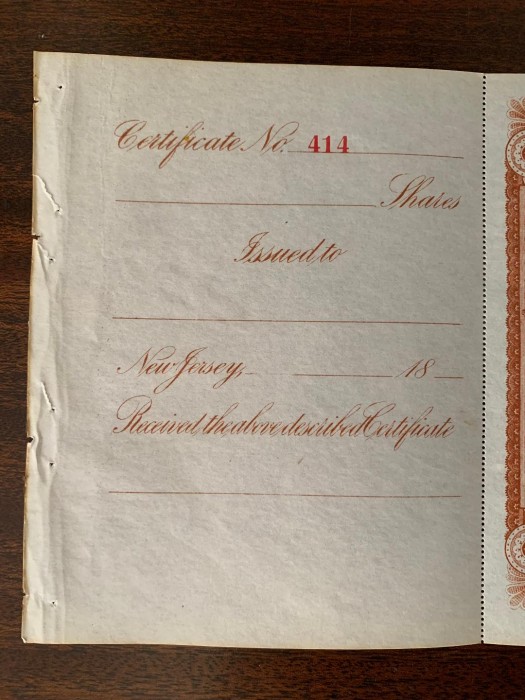 Certificate No. 414
Shares
Issued to
New Jersey, 18
Received the above described Certificate